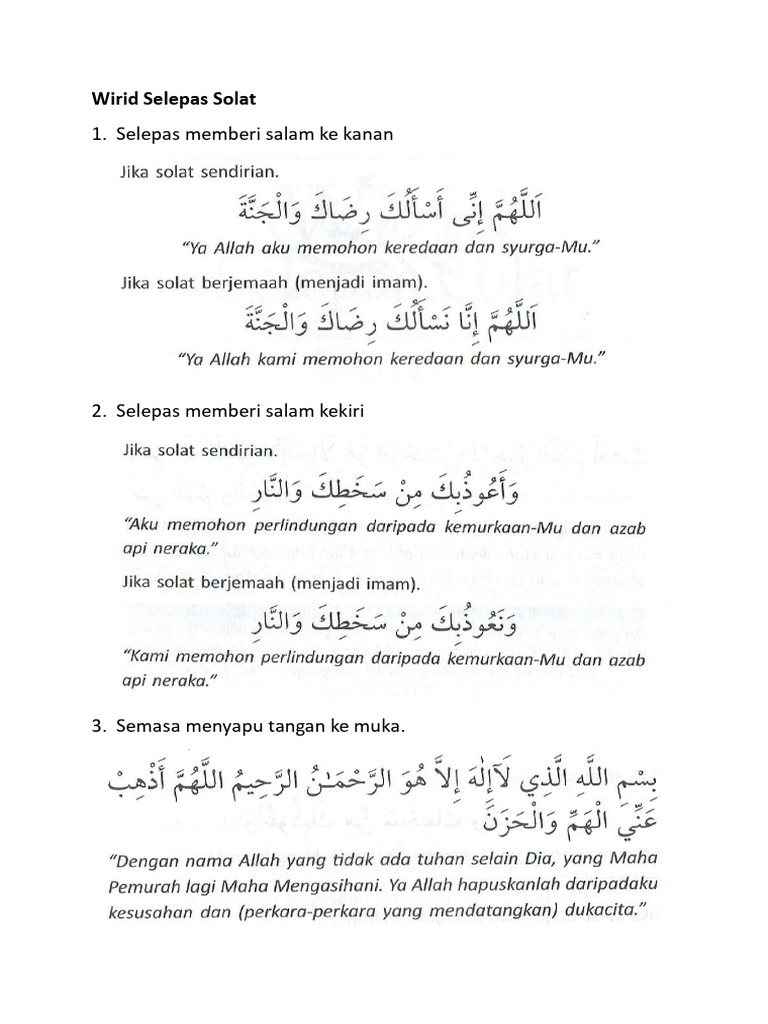 Wirid Selepas Solat
1. Selepas memberi salam ke kanan
Jika solat sendirian.
اَللَّهُمَّ إِنِّى أَسْأَلُكَ رِضَاكَ وَالْجَنَّةَ
“Ya Allah aku memohon keredaan dan syurga-Mu.”
Jika solat berjemaah (menjadi imam).
اَللَّهُمَّ إِنَّا نَسْأَلُكَ رِضَاكَ وَالْجَنَّةَ
“Ya Allah kami memohon keredaan dan syurga-Mu.”
2. Selepas memberi salam kekiri
Jika solat sendirian.
وَأَعُوذُبِكَ مِنْ سَخَطِكَ وَالنَّارِ
“Aku memohon perlindungan daripada kemurkaan-Mu dan azab
api neraka.”
Jika solat berjemaah (menjadi imam).
وَنَعُوذُبِكَ مِنْ سَخَطِكَ وَالنَّارِ
“Kami memohon perlindungan daripada kemurkaan-Mu dan azab
api neraka.”
3. Semasa menyapu tangan ke muka.
بِسْمِ اللَّهِ الَّذِي لَآإِلٰهَ إِلاَّ هُوَ الرَّحْمَـٰنُ الرَّحِيمُ اللَّهُمَّ أَذْهِبْ
عَنِّي الْهَمِّ وَالْحَزَنَ
“Dengan nama Allah yang tidak ada tuhan selain Dia, yang Maha
Pemurah lagi Maha Mengasihani. Ya Allah hapuskanlah daripadaku
kesusahan dan (perkara-perkara yang mendatangkan) dukacita.”